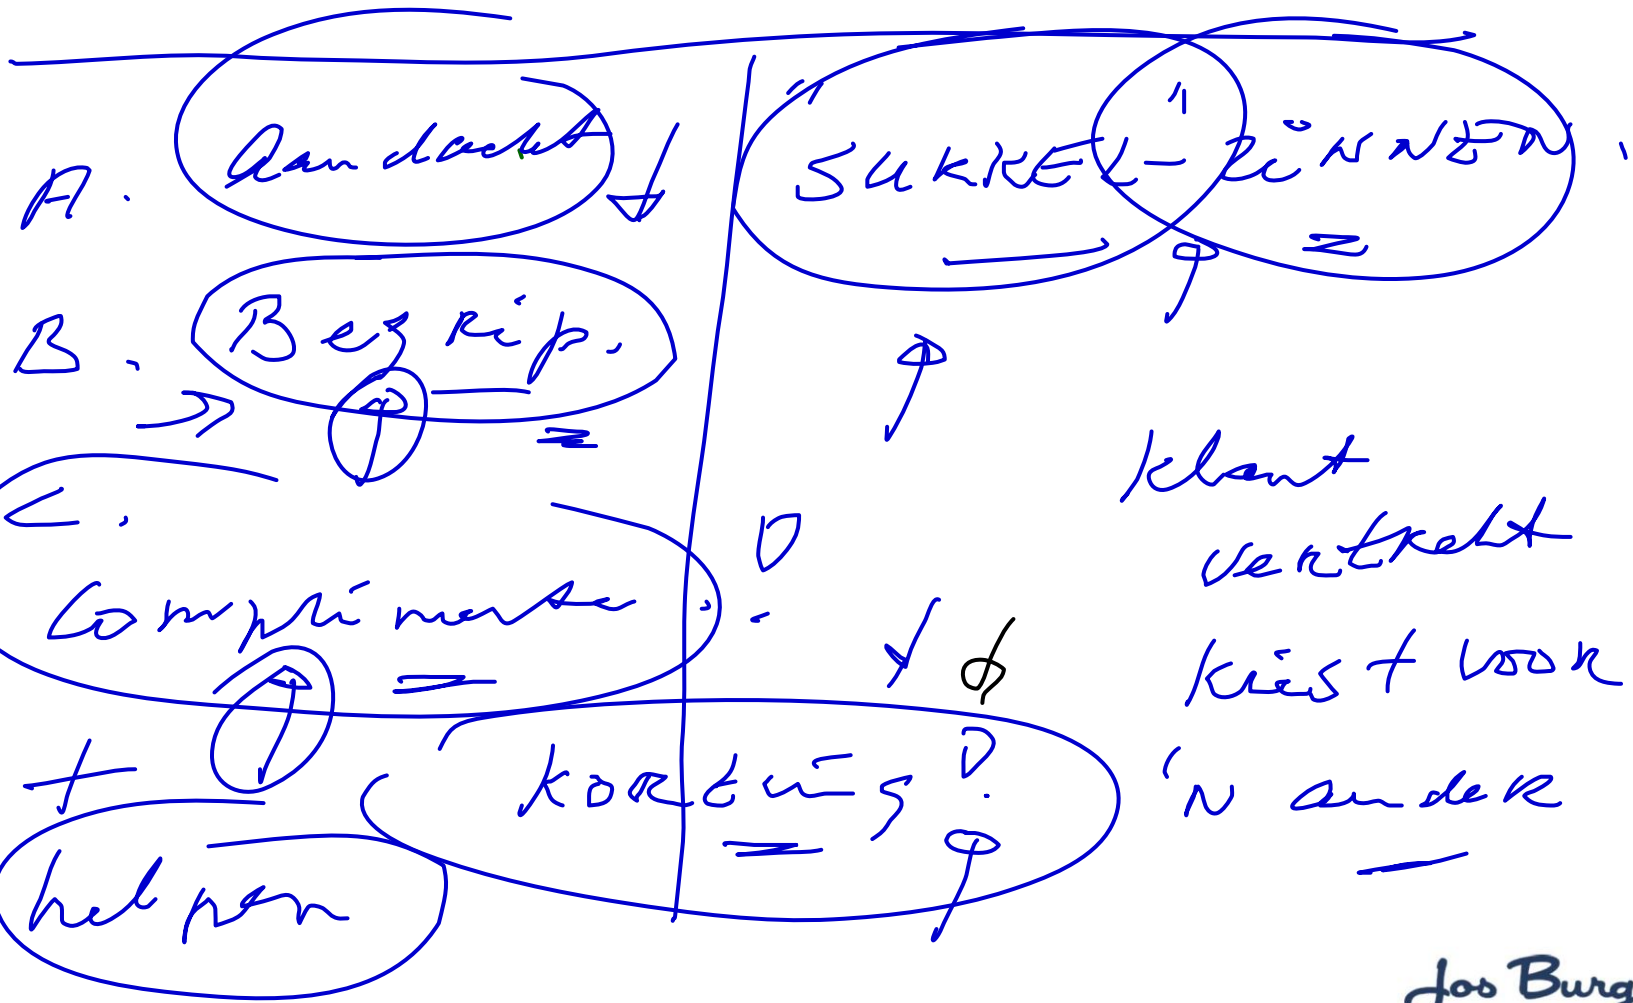 A. Aandacht
B. Begrip.
C.
Complimenten!
+
helpen
"SUKKEL-"ZINNEN.
Klant
vertrekt
Kiest voor
'N ander
KORTING!
Jos Burg